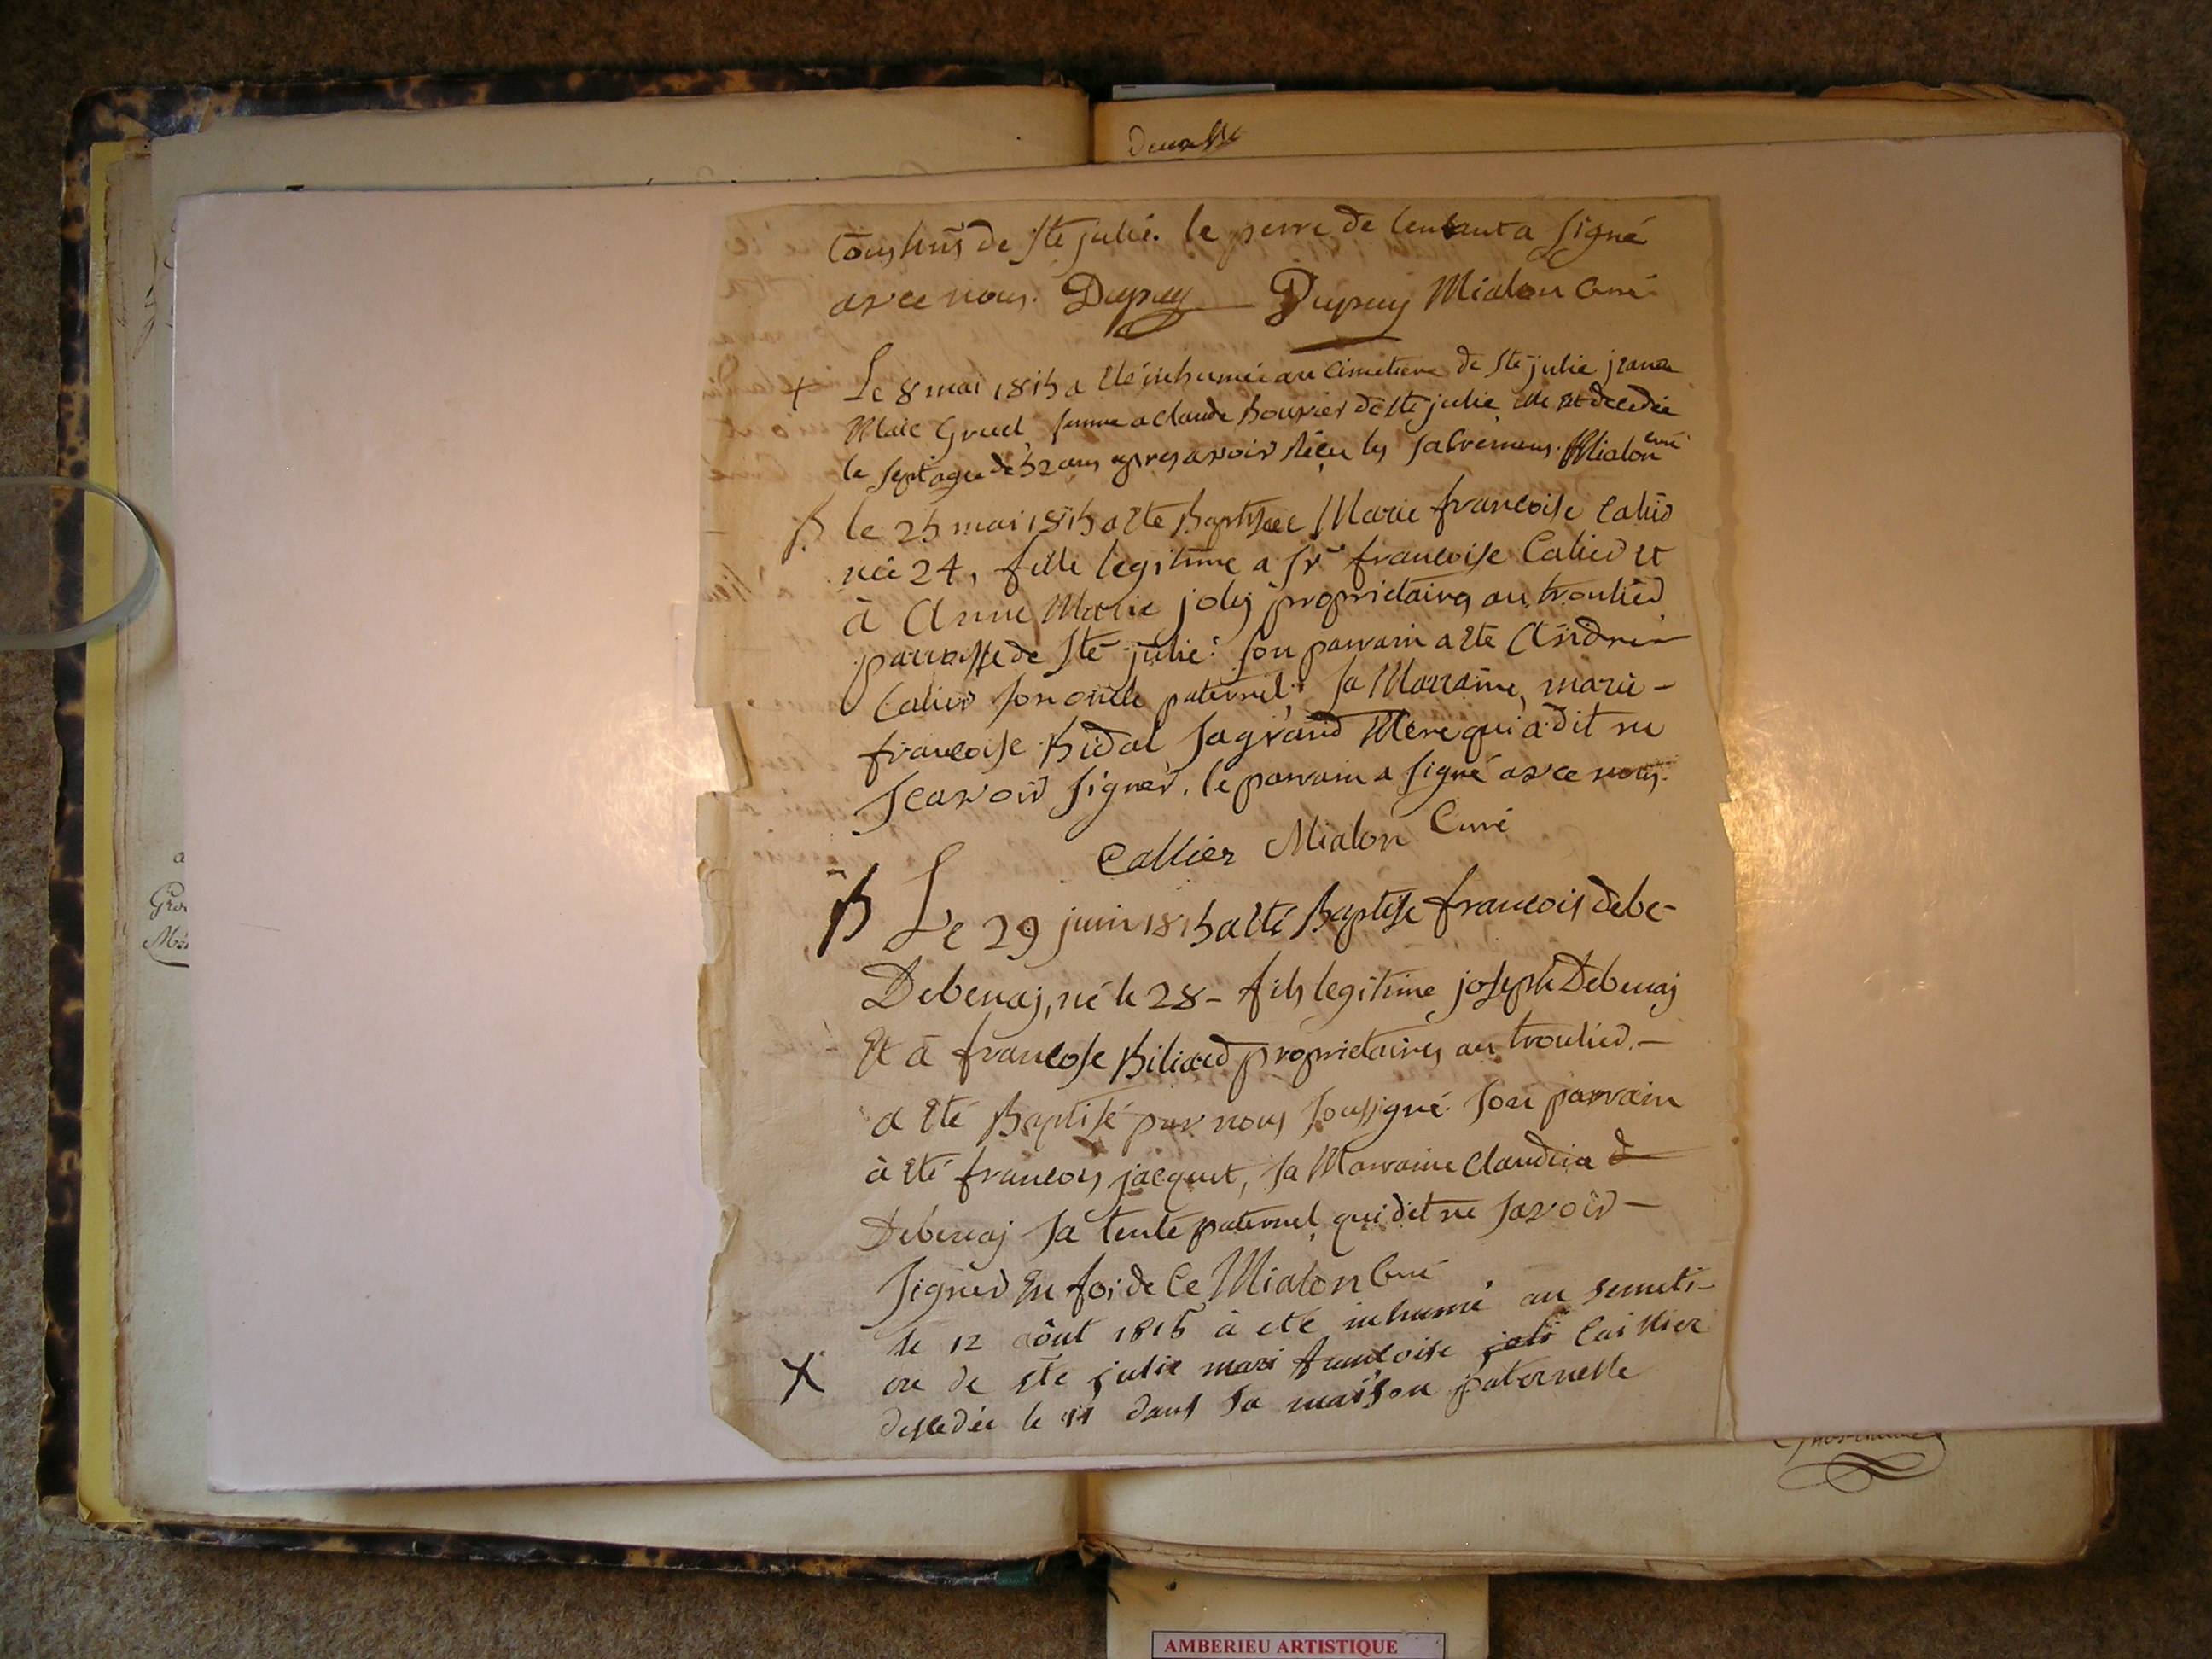 Devasse
tous hüs de Ste julie. le perre de lenfant a signé
avec nous. Dupuy Dupuy Mialon Curé
+ Le 8 mai 1815 a été inhumée au Cimetiere de Ste julie jeanne
Marie Gruel femme a claude Bouvier de Ste julie elle est decedée
le sept agee de 52 ans apres avoir Réçu les sacremens. Mialon curé
B le 25 mai 1815 a ete Baptisee Marie francoise Calier
née 24, fille legitime a sr francoise Calier et
à Anne Marie joly proprietaires au troulier
parroisse de Ste julie: son parrain a ete Andrei
Calier son oncle paternel; sa Marraine, marie-
francoise Bidal sa grand Mere qui a dit ne
scavoir signer. le parrain a signé avec nous.
Callier Mialon Curé
B Le 29 juin 1815 a été Baptise francois debe-
Debenaj, né le 28- fils legitime joseph Debenaj
Et à francose Biliard proprietaires au troulier.-
a Eté Baptisé par nous soussigné. son parrain
à Eté francois jacquet, sa Marraine claudia d
Debenaj sa tente paternel, qui dit ne savoir-
signer En foi de Ce Mialon Curé
X le 12 aôut 1815 à eté inhumé au semeti-
ere de ste julie mari francoise joli Caillier
dessedée le 11 dans sa maison paternelle
Gro
AMBERIEU ARTISTIQUE